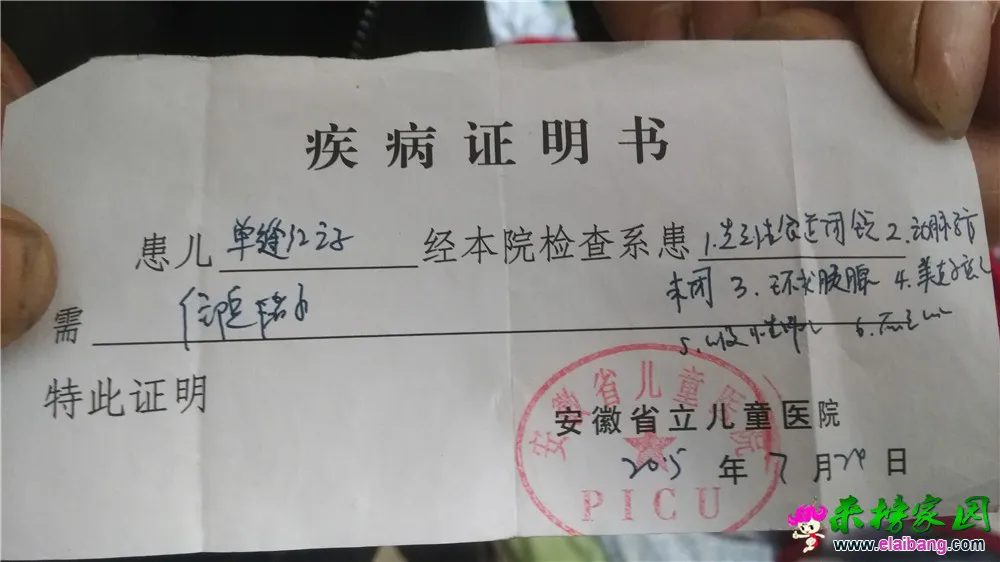 疾病证明书
患儿 单缝红之子 经本院检查系患 1. 先天性食道闭锁 2. 动脉导管
未闭 3. 环状胰腺 4.
需 住院治疗
5. 6.
特此证明
安徽省儿童医院
安徽省立儿童医院
2015 年 7 月 29 日
PICU
来榜家园
www.elaibang.com